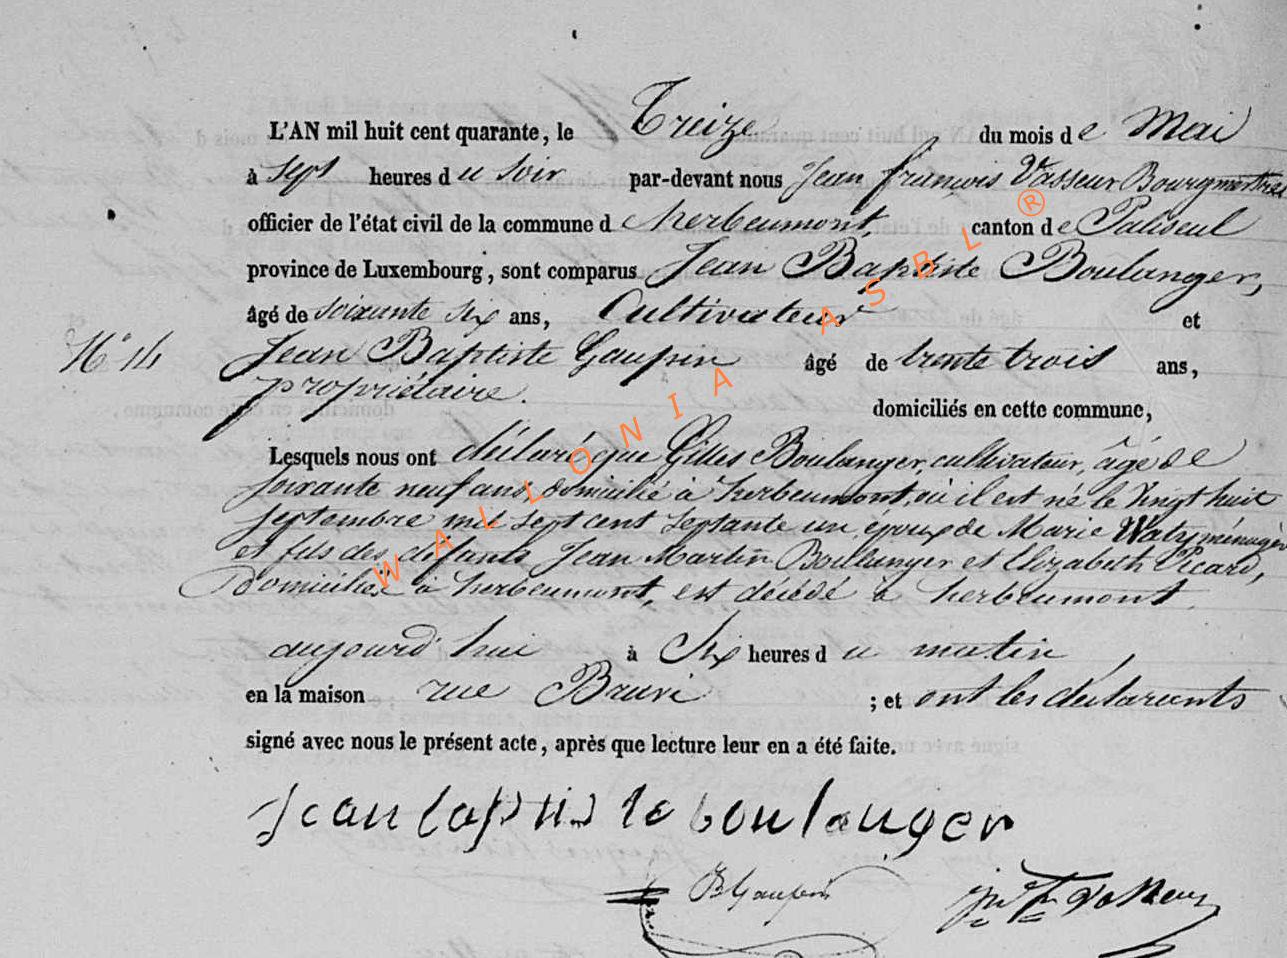 L'AN mil huit cent quarante, le Treize du mois de Mai
à sept heures du soir par-devant nous Jean françois Vasseur Bourgmestre
officier de l'état civil de la commune d'herbeumont, canton de Paliseul
province de Luxembourg, sont comparus Jean Baptiste Boulanger,
âgé de soixante six ans, Cultivateur et
N° 14 Jean Baptiste Gaupin âgé de trente trois ans,
propriétaire.
domiciliés en cette commune,
Lesquels nous ont déclaré que Gilles Boulanger, cultivateur, âgé de
soixante neuf ans, domicilié à herbeumont, où il est né le Vingt huit
septembre mil sept cent septante un, époux de Marie Waty ménagère
et fils des défunts Jean Martin Boulanger et Elizabeth Picard,
Domiciliés à herbeumont, est décédé à herbeumont,
aujourd'hui à Six heures du matin,
en la maison rue ; et ont les déclarants
signé avec nous le présent acte, après que lecture leur en a été faite.
jean baptiste boulanger
JBGaupin
WALLONIA ASBL ®